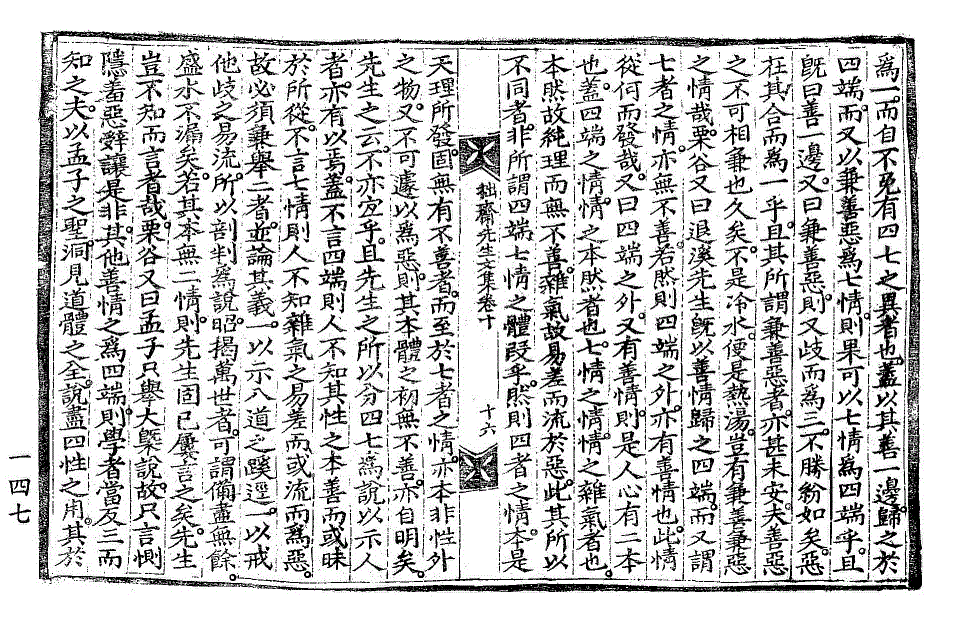 爲一而自不免有四七之異者也蓋以其善一邊歸之於
四端而又以兼善惡爲七情則果可以七情爲四端乎且
旣曰善一邊又曰兼善惡則又歧而爲三不勝紛如矣惡
在其合而爲一乎且其所謂兼善惡者亦甚未安夫善惡
之不可相兼也久矣不是冷水便是熱湯豈有兼善兼惡
之情哉栗谷又曰退溪先生旣以善情歸之四端而又謂
七者之情亦無不善若然則四端之外亦有善情也此情
從何而發哉又曰四端之外又有善情則是人心有二本
也蓋四端之情情之本然者也七情之情情之雜氣者也
本然故純理而無不善雜氣故易差而流於惡此其所以
不同者非所謂四端七情之體段乎然則四者之情本是
拙齋先生文集卷十
十六
天理所發固無有不善者而至於七者之情亦本非性外
之物又不可遽以爲惡則其本體之初無不善亦自明矣
先生之云不亦宜乎且先生之所以分四七爲說以示人
者亦有以焉蓋不言四端則人不知其性之本善而或昧
於所從不言七情則人不知雜氣之易差而或流而爲惡
故必須兼擧二者迭論其義一以示八道之蹊逕一以戒
他歧之易流所以剖判爲說昭揭萬世者可謂備盡無餘
盛水不漏矣若其本無二情則先生固已屢言之矣先生
豈不知而言者哉栗谷又曰孟子只擧大槩說故只言惻
隱羞惡辭讓是非其他善情之爲四端則學者當反三而
知之夫以孟子之聖洞見道體之全說盡四性之用其於
一四七